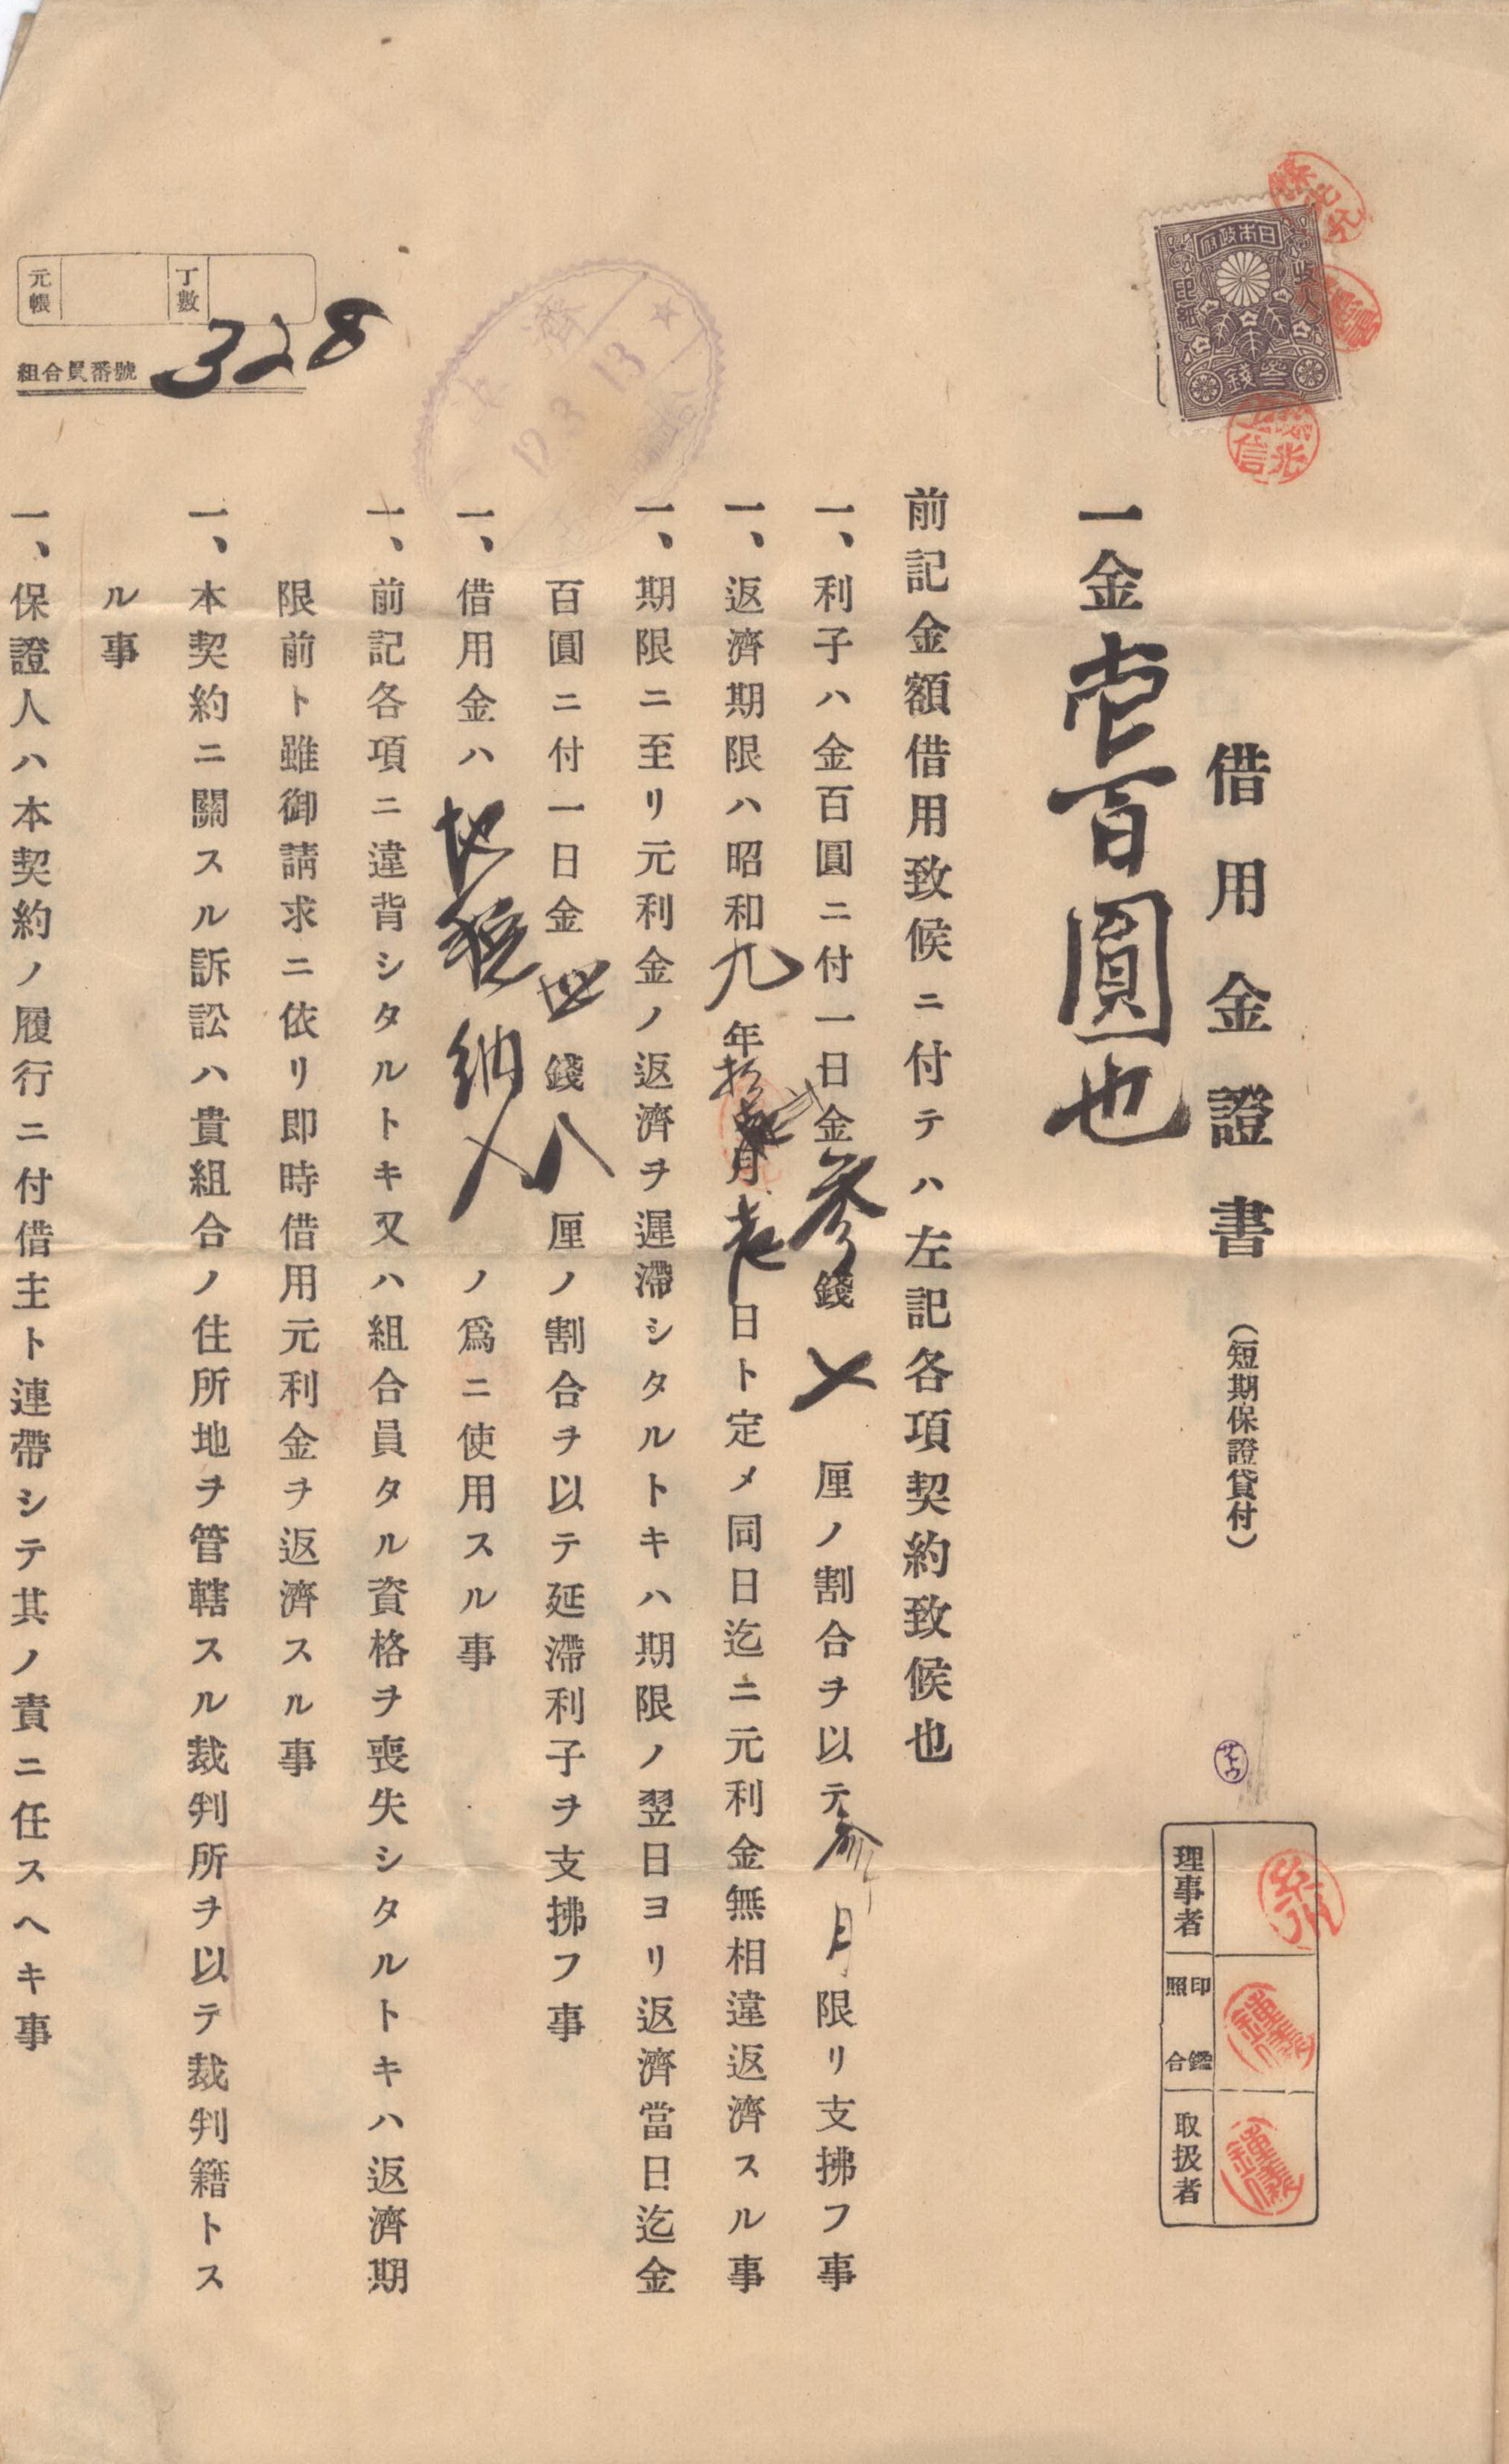 借用金證書(短期保證貸付)
一金壱百圓也
前記金額借用致候ニ付テハ左記各項契約致候也
一、利子ハ金百圓ニ付一日金参錢〆厘ノ割合ヲ以テ参ケ月限リ支拂フ事
一、返濟期限ハ昭和九年拾月壱日ト定メ同日迄ニ元利金無相違返濟スル事
一、期限ニ至リ元利金ノ返濟ヲ遲滯シタルトキハ期限ノ翌日ヨリ返濟當日迄金
百圓ニ付一日金四錢八厘ノ割合ヲ以テ延滯利子ヲ支拂フ事
一、借用金ハ地租納入ノ爲ニ使用スル事
一、前記各項ニ違背シタルトキ又ハ組合員タル資格ヲ喪失シタルトキハ返濟期
限前ト雖御請求ニ依リ即時借用元利金ヲ返濟スル事
一、本契約ニ關スル訴訟ハ貴組合ノ住所地ヲ管轄スル裁判所ヲ以テ裁判籍トス
ル事
一、保證人ハ本契約ノ履行ニ付借主ト連帶シテ其ノ責ニ任スヘキ事
日本政府
收入印紙
参錢
理事者
印鑑照合
取扱者
サトウ
元帳
丁數
組合員番號 328